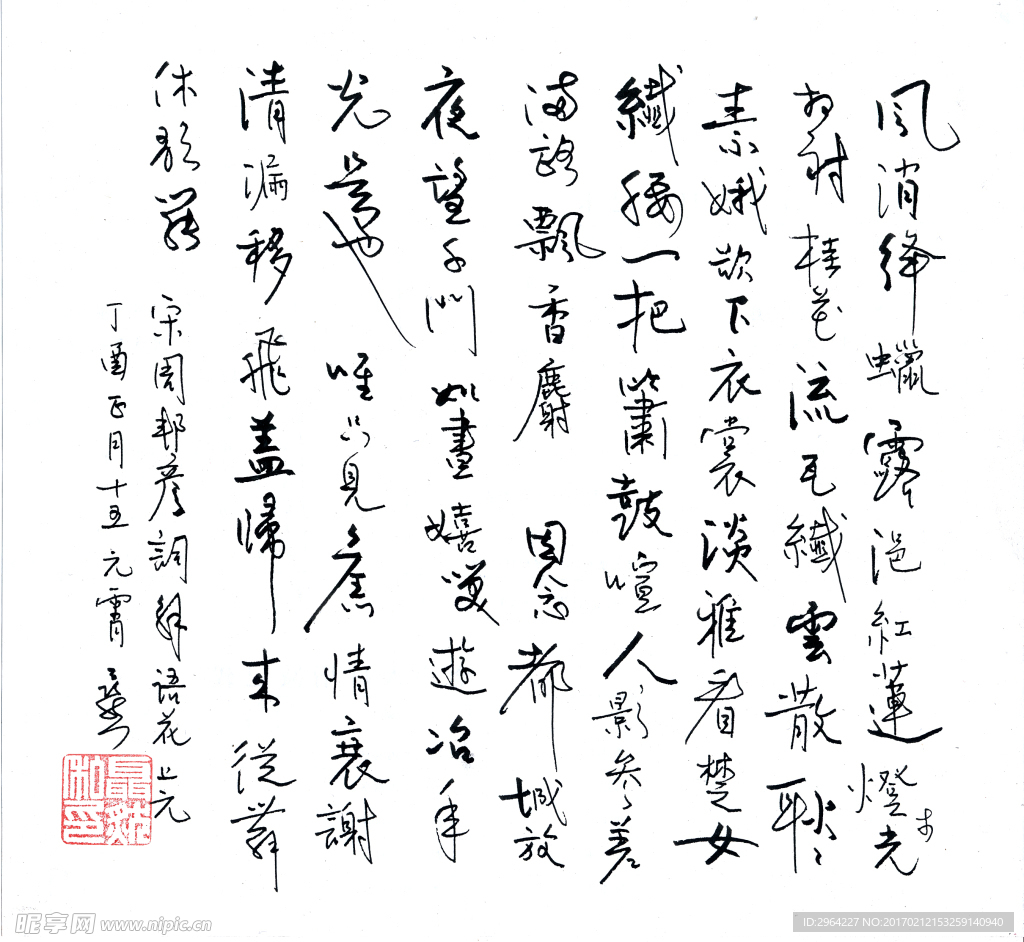 风消絳蠟露浥紅蓮燈光
市
相射桂花流瓦纖雲散耿々
素娥欲下衣裳淡雅看楚女
纖腰一把簫鼓喧人影参差
满路飄香麝 因念都城放
夜望千门如晝嬉咲遊冶年
光是也 唯只見舊情衰謝
清漏移飛盖歸来從舞
休歌罷 宋周邦彦詞解語花上元
丁酉正月十五元宵
昵享网 www.nipic.cn
ID:2964227 NO:20170212153259140940